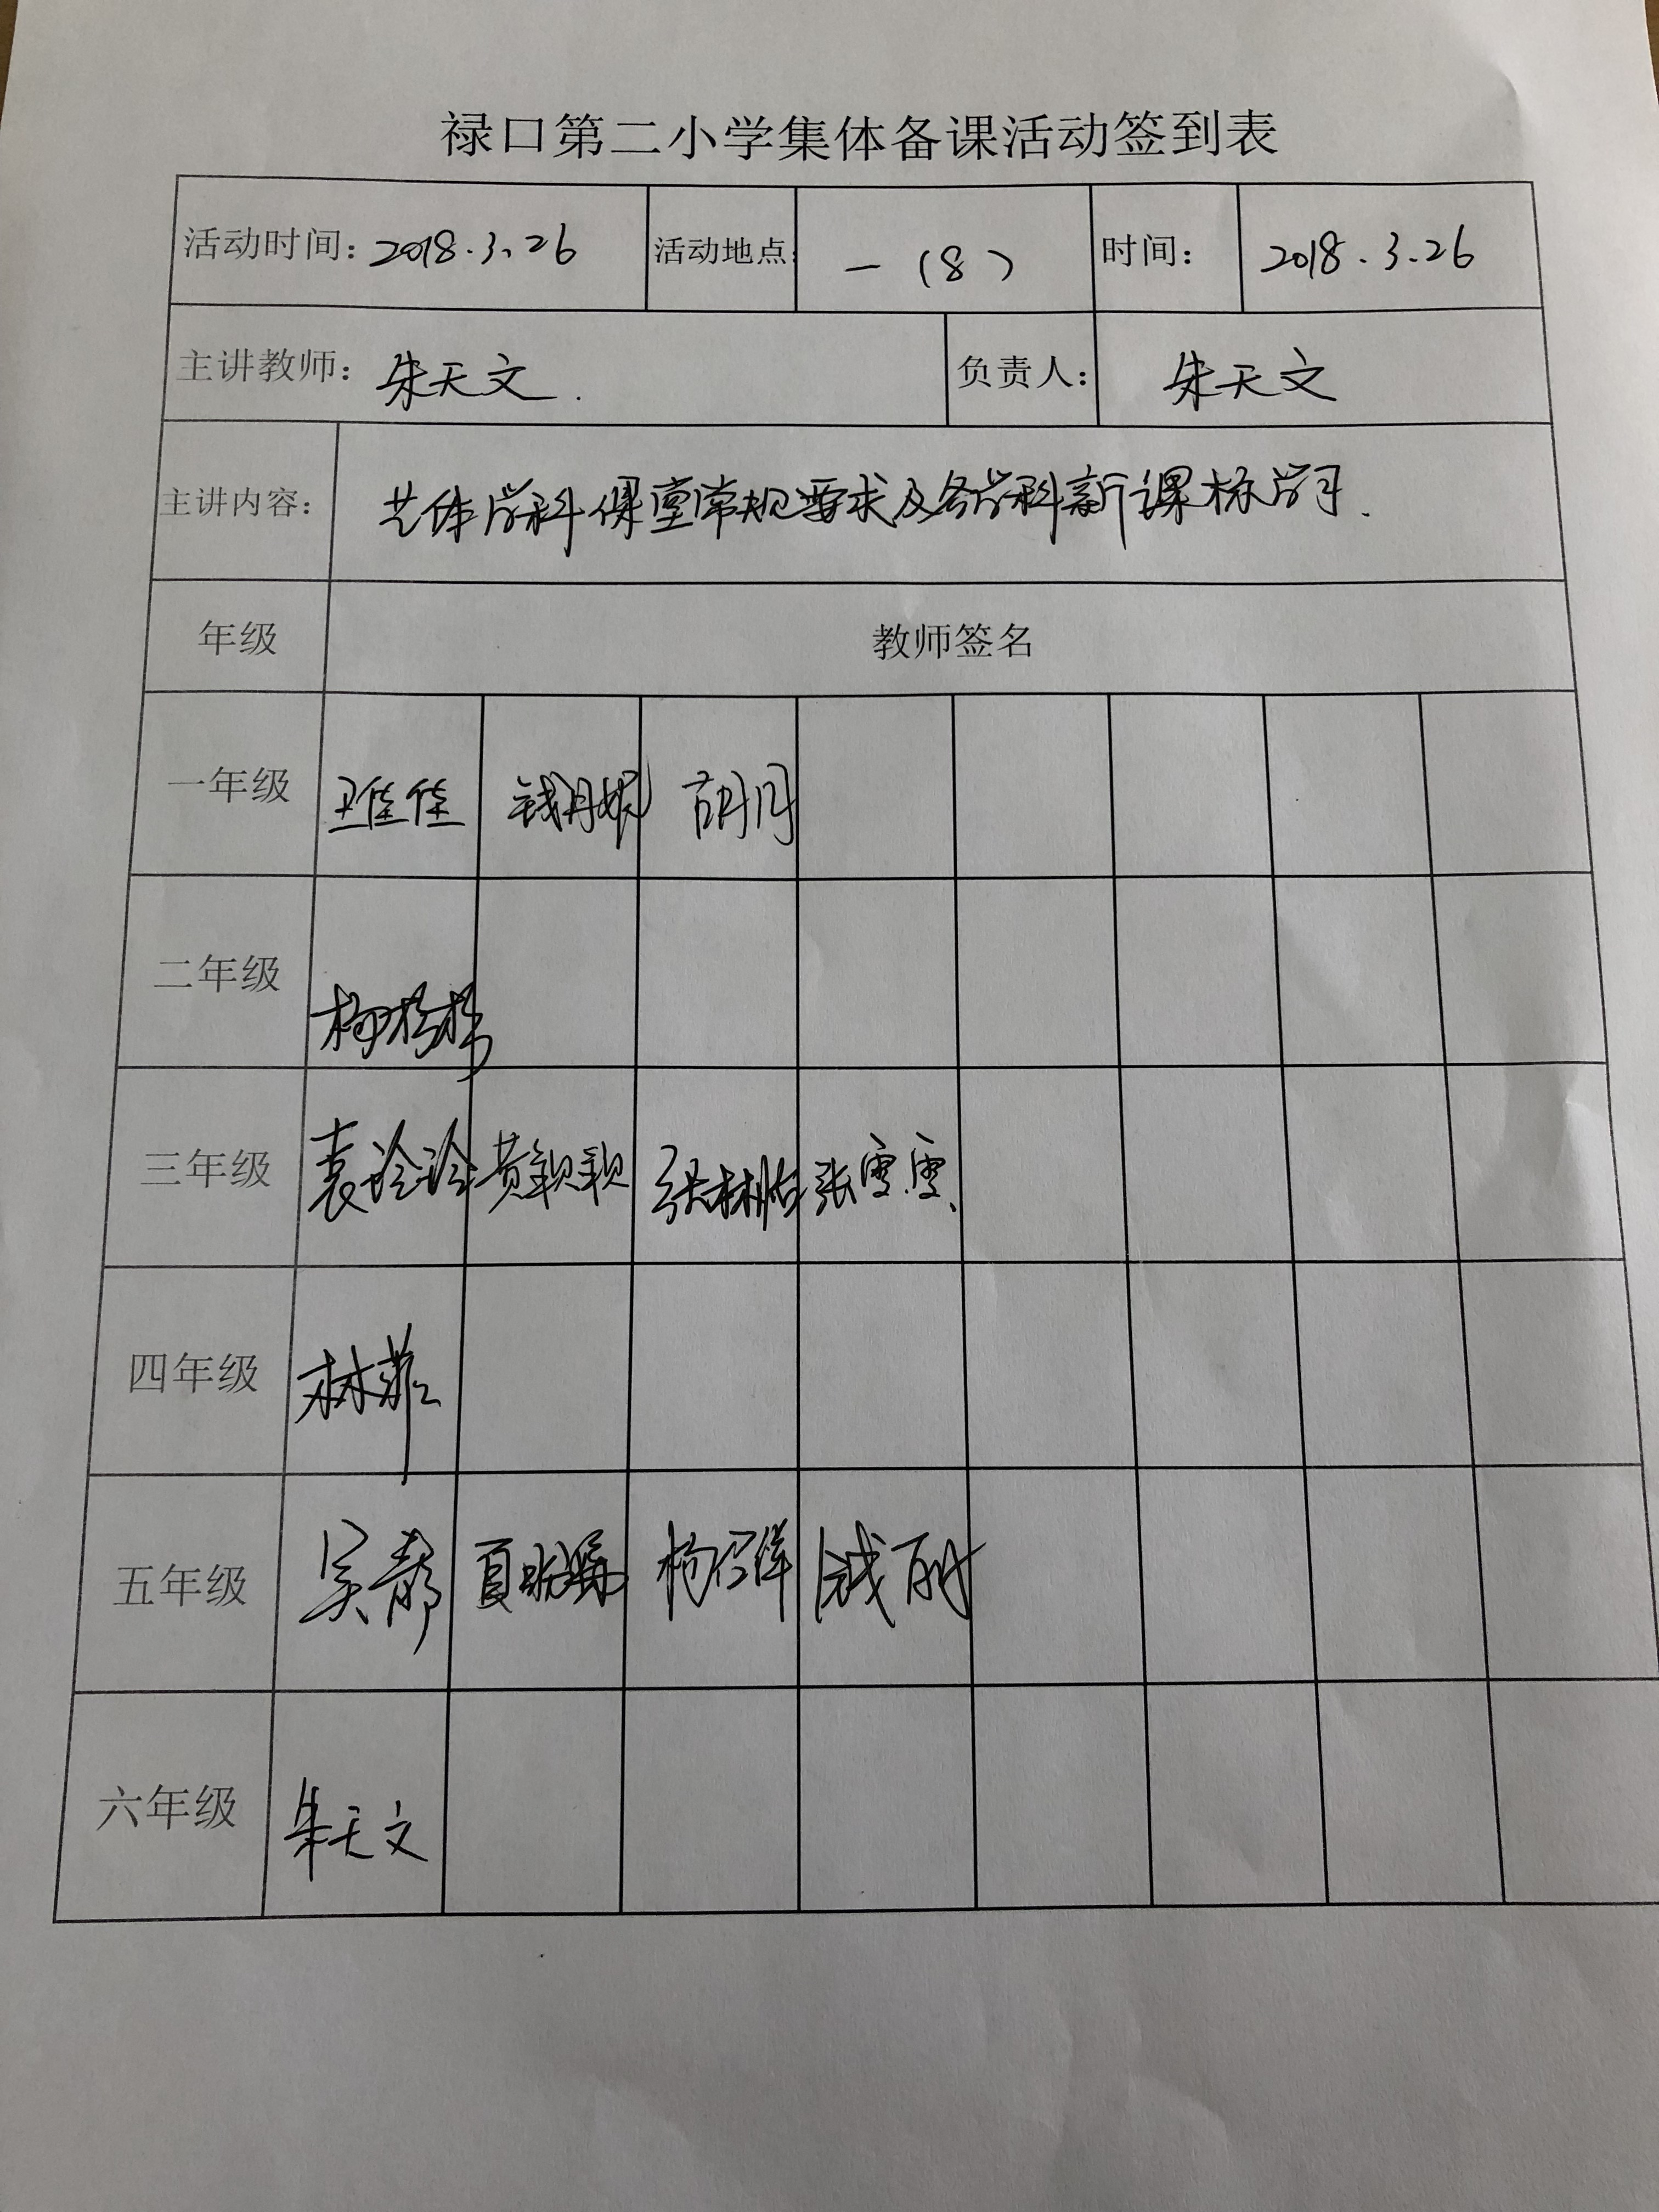 禄口第二小学集体备课活动签到表
活动时间：2018.3.26 活动地点： 一（8） 时间： 2018.3.26
主讲教师：朱天文. 负责人： 朱天文
主讲内容： 艺体学科课堂常规要求及各学科新课标学习.
年级 教师签名
一年级 王佳佳 钱月娥 胡月
二年级
三年级 袁玲玲 黄颖颖 张雪雪
四年级 林菲
五年级 吴静 钱丽
六年级 朱天文